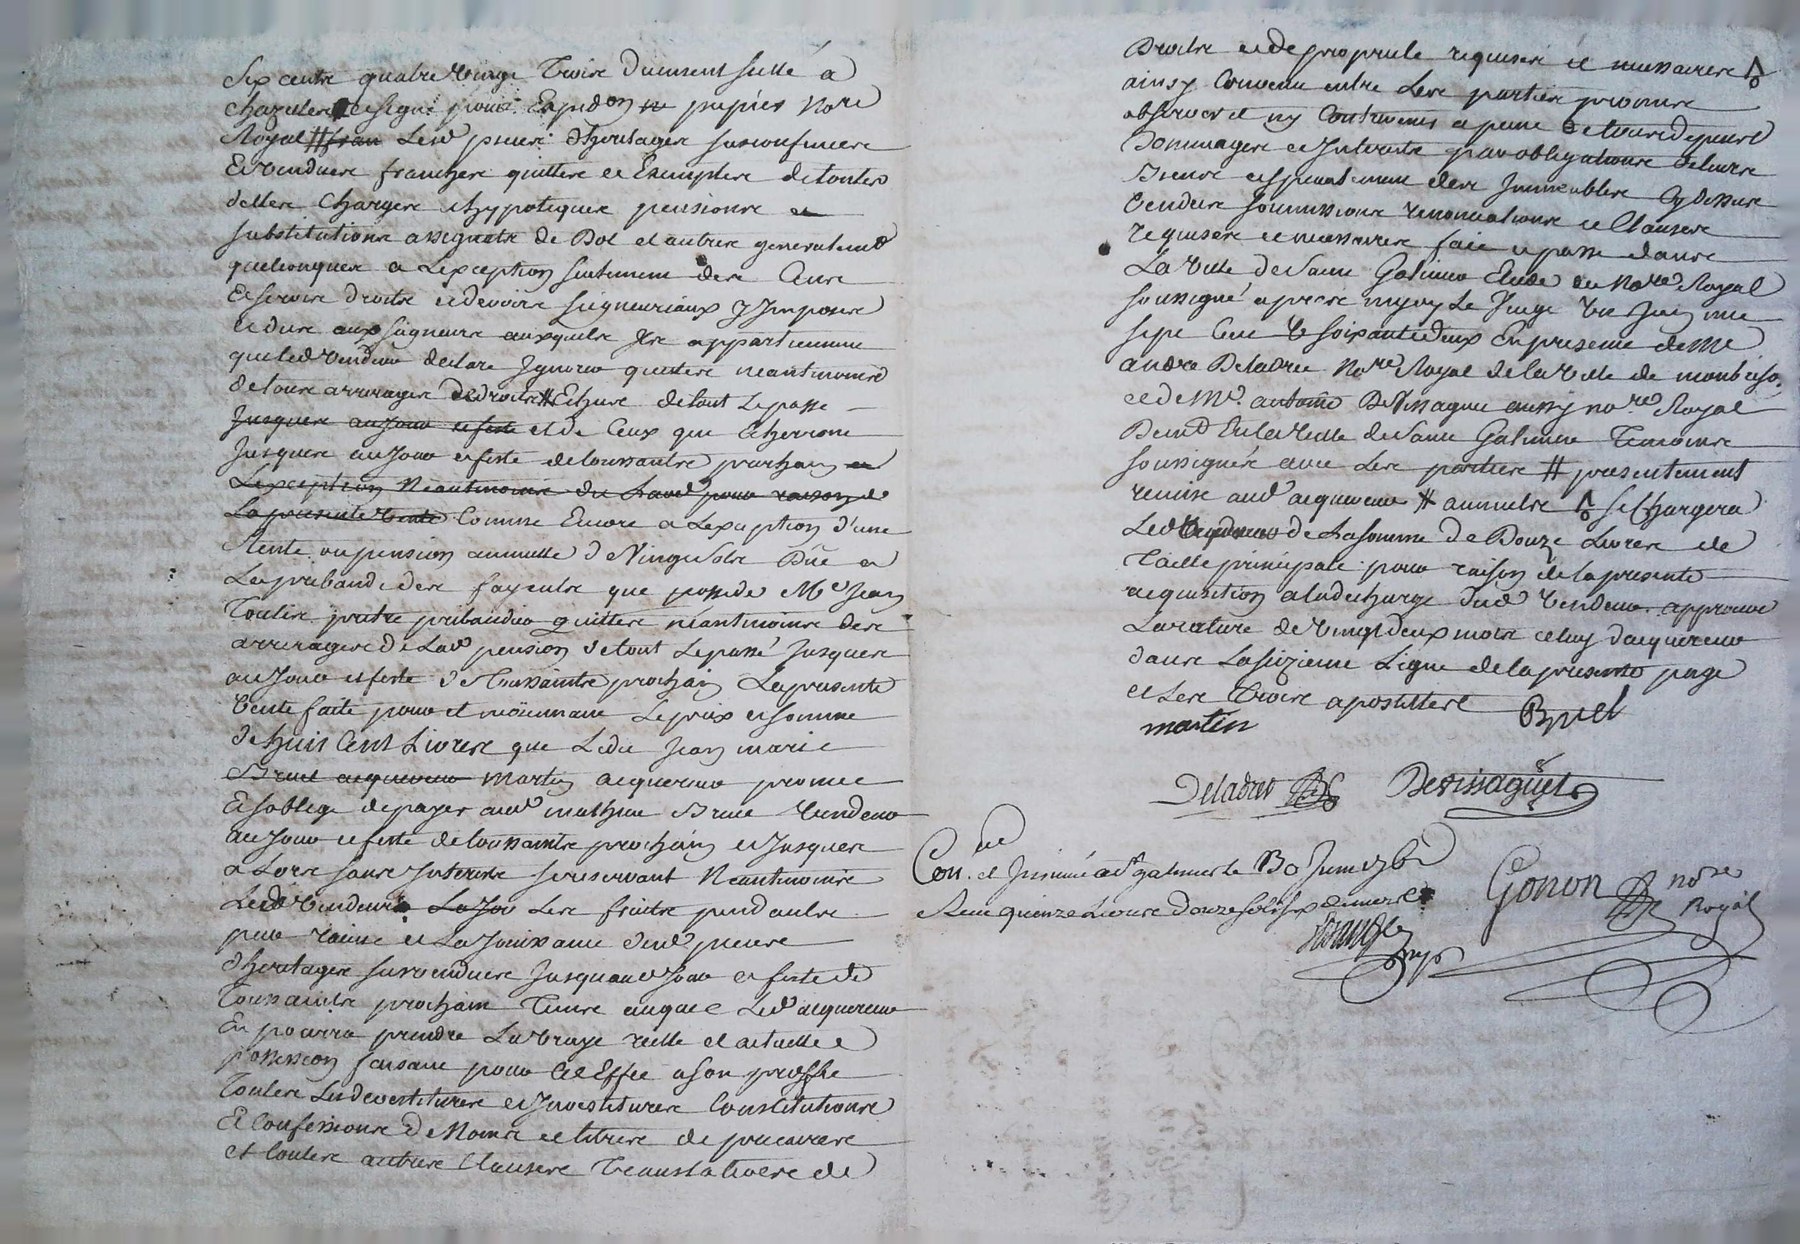 Six cents quatre vingt Troire duement scellé a
Chazelere et signé pour Expedon ne papier Nore
Royal # fran Lesd piecere dheritagere susconfineere
Et vendüere franchere quittere et Exemptere de toutere
dettere Chargere et hypotequere pensionre et
substitutionre assignatre de Dot et autrere generalemt
quelconquere a Lexception seulement dere Cenre
Et servire droitre et devoire seigneuriaux y Imposere
et dure aux seigneure auxquelre Ilre appartiennene
que led vendeur declare Ignorer quittere neantmoinre
de toure arreragere de droitre # Echure de tout Le passe
Jusquere au Jour et feste et de Ceux que Echerronre
Jusquere au Jour et feste de toussaintre prochain et
Lexception Neantmoinre du Laod pour raison de
La presente vente Comme Encore a Lexception d'une
Rente ou pension annuelle de vingt solre Düe a
La prebande dere fayettre que possede Mre Jean
prestre prebandier quittere néantmoinre dere
arreragere de Lad pension de tout Le passé Jusquere
au Jour et feste de Toussaintre prochain La presente
Vente faite pour et moïennant Le prix et somme
de huit Cent Livrere que Ledit Jean marie
Bruel acquereur Martin acquereur promet
Et soblige de payer aud mathieu Bruel Vendeur
au Jour et feste de toussaintre prochain et Jusquere
a Lorre sanre Interetre se reservant Neantmoinre
Led Vendeur La Jou Lere fruitre pendantre
par racine et La Jouissance desd piecere
dheritagere susvendüere Jusquaud Jour et feste de
Toussaintre prochain Temre auquel Led acquereur
En pourra prendre La vraye reelle et actuelle
possession faisant pour Cet Effet a son proffit
Toutere Lesd devestiturere et Investiturere Constitutionre
Et Confessionre de Nomre et titrere de precairere
et toutere autrere Clausere Translativere de
Droitre et de proprieté requisere et necessairere
ainsy Convenu entre Lere partiere promire
observer et ny Contrevenir a peine de toure depenre
Dommagere et Interetre par obligationre de leurre
Bienre et specialement dere Immeublere Cy dessure
Vendure soumissionre renonciationre et Clausere
requisere et necessairere fait et passé danre
La ville de Saint Galmier Etude du Nore Royal
soussigné apprere midy Le vingt Juin mil
sept Cent et soixante deux En presence de Me
andré Deladret Nore Royal de la ville de montbriso
et de Mre antoine Devissaguet aussy nore Royal
Demt En La ville de Saint Galmier Temoinre
soussignére avec Lere partiere # presentement
remire aud acquereur # annuelre se Chargera
Led de La somme de Douze Livrere de
Taille principale pour raison de la presente
acquisition a la decharge dud vendeur approuvé
La rature de vingt deux motre celuy dacquereur
danre La seizieme Ligne de la presente page
et Lere Troire apostillere Bruel
martin
Deladret Devissaguet
Con. et Insinué a St galmier le 30 Juin 1762
Receu quinze Livrere douze sols six deniers
Gonon nore
Royal